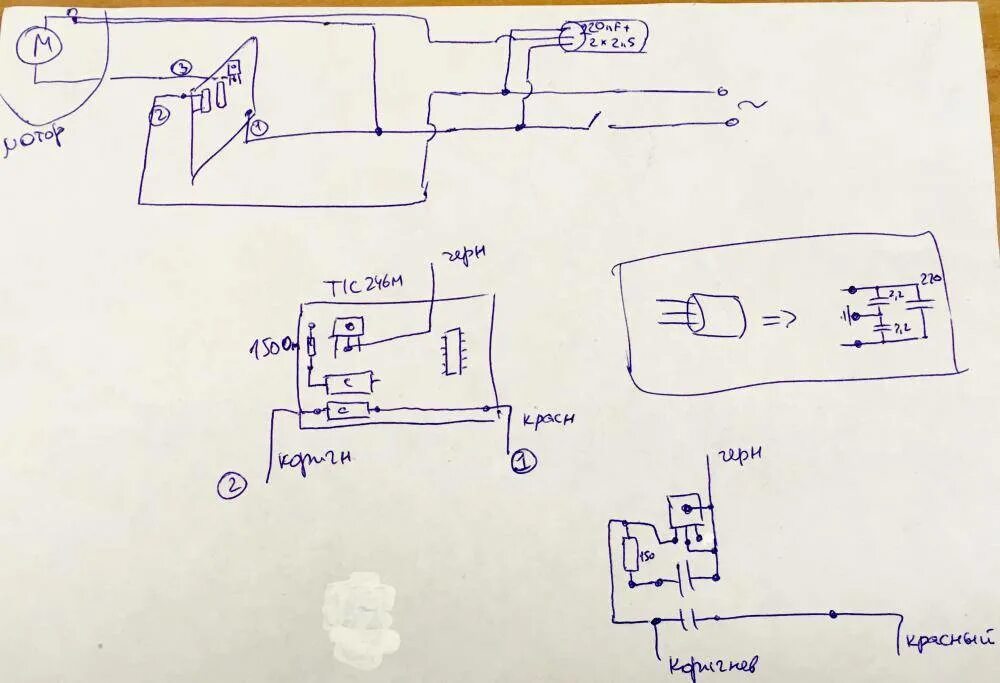 M
мотор
3
2
1
220nF+
2×2n5
~
TIC 246M
черн
150 Ом
C
C
коричн
2
красн
1
=>
220
2,2
2,2
черн
150
коричнев
красный